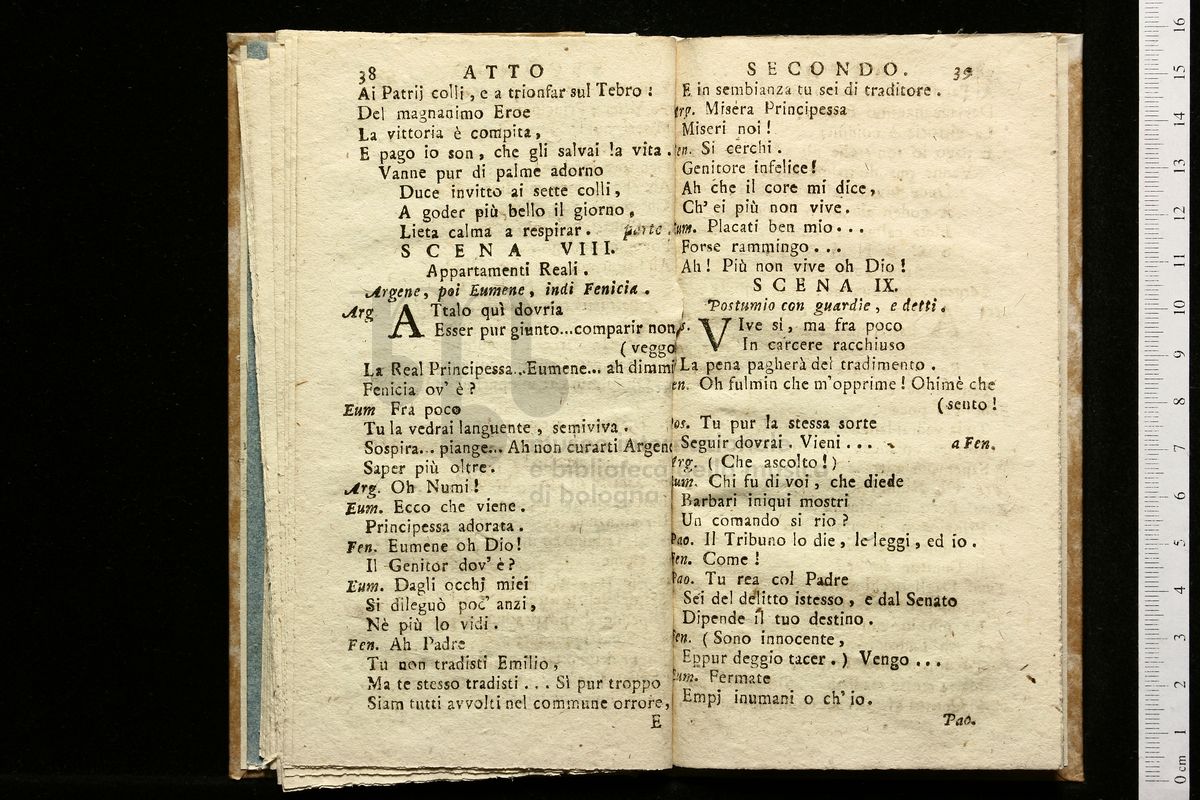 38 ATTO
Ai Patrij colli, e a trionfar sul Tebro:
Del magnanimo Eroe
La vittoria è compita,
E pago io son, che gli salvai la vita.
Vanne pur di palme adorno
Duce invitto ai sette colli,
A goder più bello il giorno,
Lieta calma a respirar. parte.
SCENA VIII.
Appartamenti Reali.
Argene, poi Eumene, indi Fenicia.
Arg ATtalo quì dovria
Esser pur giunto...comparir non
(veggo
La Real Principessa...Eumene... ah dimmi
Fenicia ov' è?
Eum Fra poco
Tu la vedrai languente, semiviva.
Sospira... piange... Ah non curarti Argene
Saper più oltre.
Arg. Oh Numi!
Eum. Ecco che viene.
Principessa adorata.
Fen. Eumene oh Dio!
Il Genitor dov' è?
Eum. Dagli occhj miei
Si dileguò poc' anzi,
Nè più lo vidi.
Fen. Ah Padre
Tu non tradisti Emilio,
Ma te stesso tradisti... Sì pur troppo
Siam tutti avvolti nel commune orrore,
E
SECONDO. 39
E in sembianza tu sei di traditore.
Arg. Misera Principessa
Miseri noi!
Fen. Si cerchi.
Genitore infelice!
Ah che il core mi dice,
Ch' ei più non vive.
Eum. Placati ben mio...
Forse rammingo...
Ah! Più non vive oh Dio!
SCENA IX.
Postumio con guardie, e detti.
s. VIve si, ma fra poco
In carcere racchiuso
La pena pagherà del tradimento.
Fen. Oh fulmin che m'opprime! Ohimè che
(sento!
Pos. Tu pur la stessa sorte
Seguir dovrai. Vieni... a Fen.
Arg. (Che ascolto!)
Eum. Chi fu di voi, che diede
Barbari iniqui mostri
Un comando si rio?
Pao. Il Tribuno lo die, le leggi, ed io.
Fen. Come!
Pao. Tu rea col Padre
Sei del delitto istesso, e dal Senato
Dipende il tuo destino.
Fen. (Sono innocente,
Eppur deggio tacer.) Vengo...
Eum. Fermate
Empj inumani o ch' io.
Pao.
e biblioteca della musica
di bologna
0 cm 1 2 3 4 5 6 7 8 9 10 11 12 13 14 15 16